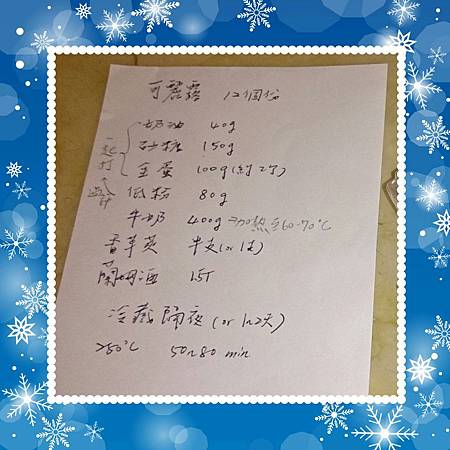 可麗露 12個份
奶油 40g
砂糖 150g
全蛋 100g(約2個)
低粉 80g
牛奶 400g ⇒加熱至60-70℃
香草莢 半支(or 1支)
蘭姆酒 1.5T
冷藏隔夜(or 1~2天)
250℃ 50~80 min
一起打